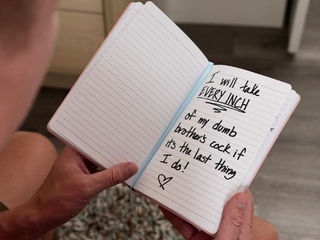 I will take
EVERY INCH
of my dumb
brother's cock if
it's the last thing
I do!